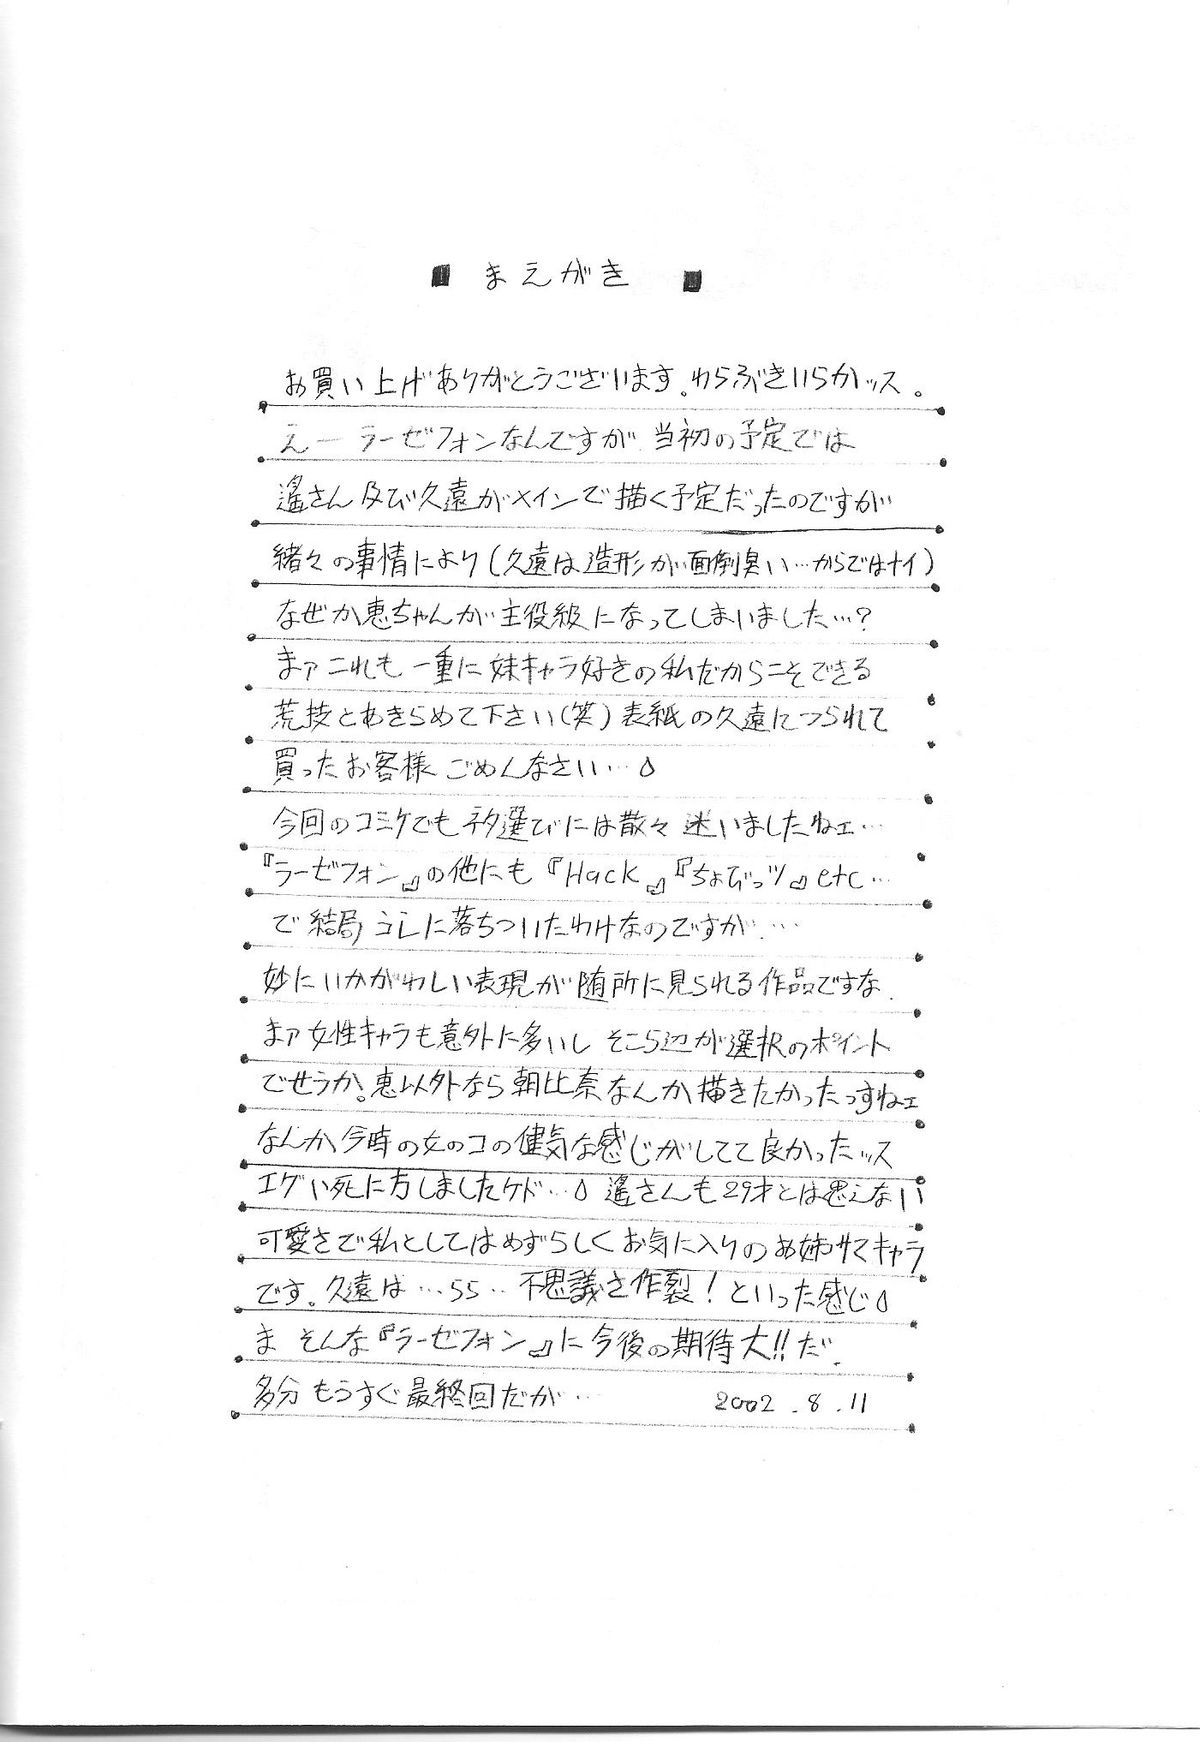 ■ まえがき ■
お買い上げありがとうございます。わらぶきいらかッス。
えー ラーゼフォンなんですが 当初の予定では
遙さん及び久遠がメインで描く予定だったのですが
緒々の事情により(久遠は造形が面倒臭い…からではナイ)
なぜか恵ちゃんが主役級になってしまいました…?
まァこれも一重に妹キャラ好きの私だからこそできる
荒技とあきらめて下さい(笑)表紙の久遠につられて
買ったお客様ごめんなさい…
今回のコミケでもネタ選びには散々迷いましたねェ…
『ラーゼフォン』の他にも『Hack』『ちょびっツ』etc…
で結局コレに落ちついたわけなのですが…
妙にいかがわしい表現が随所に見られる作品ですな。
まァ女性キャラも意外に多いし そこら辺が選択のポイント
でせうか。恵以外なら朝比奈なんか描きたかったっすねェ
なんか今時の女のコの健気な感じがしてて良かったッス
エグい死に方しましたケド… 遙さんも29才とは思えない
可愛さで私としてはめずらしくお気に入りのお姉サマキャラ
です。久遠は…ララ…不思議さ作裂!といった感じ
ま そんな『ラーゼフォン』に今後の期待大!!だ。
多分もうすぐ最終回だが… 2002.8.11